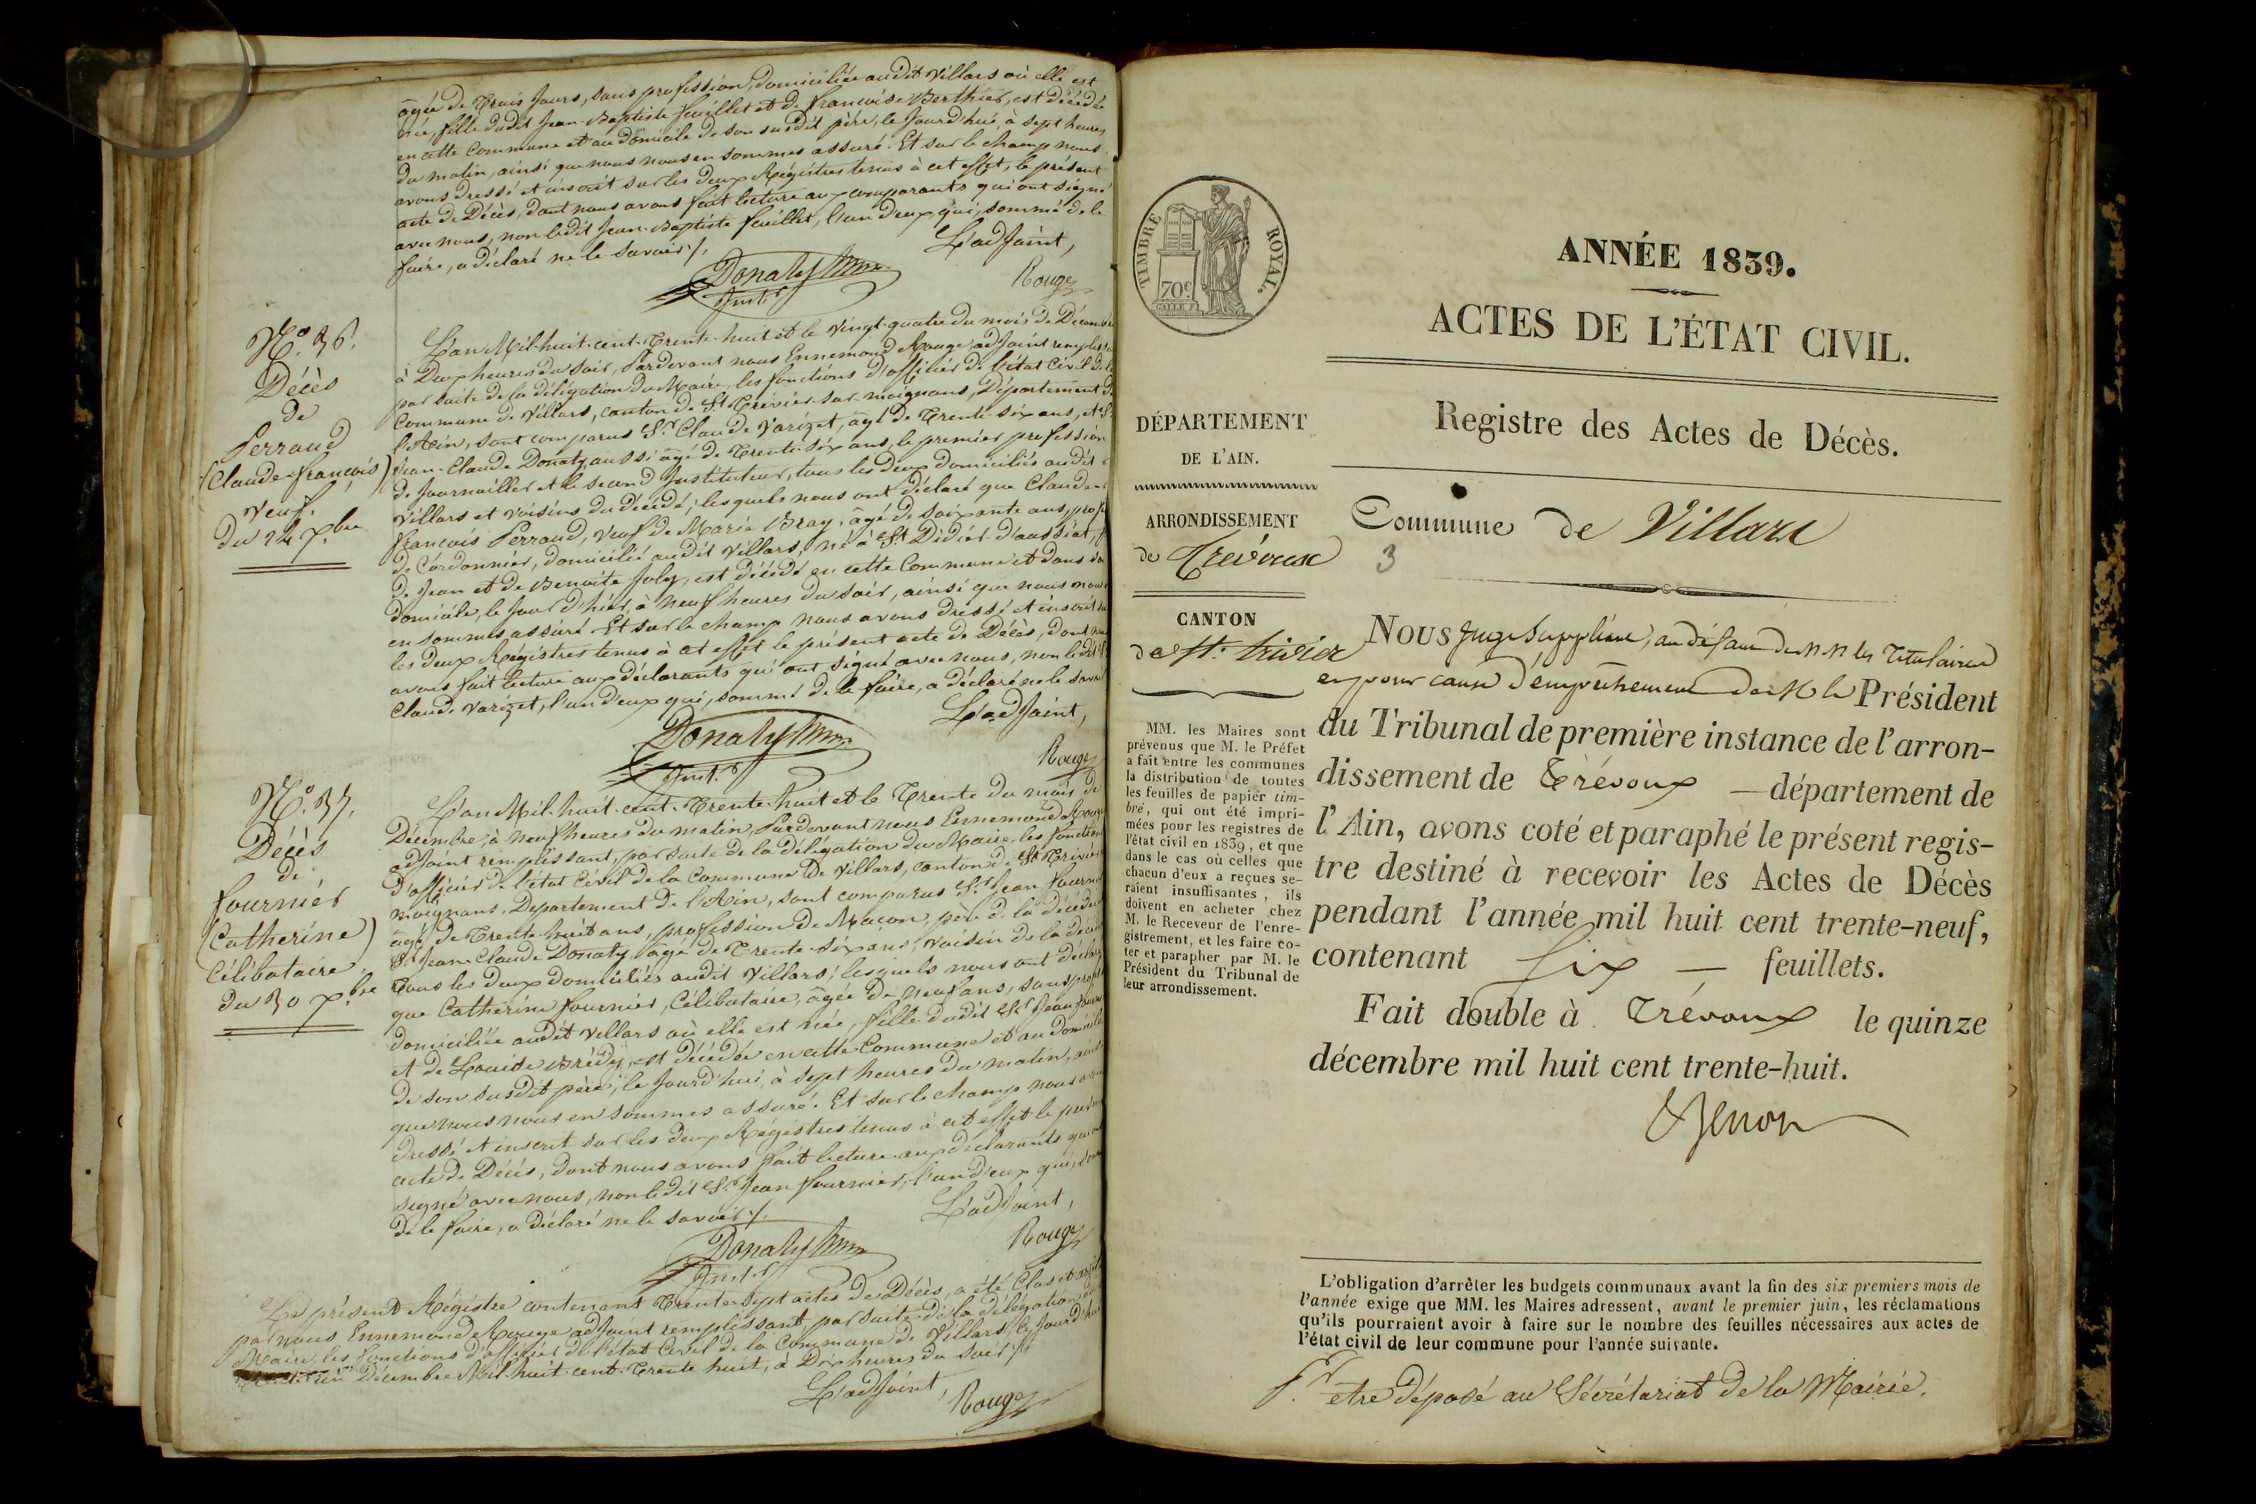 âgée de Trois Jours, sans profession, domiciliée audit Villars où elle est
née, fille dudit Jean-Baptiste feuillet et de françoise Berthier, est décédée
en cette Commune et au domicile de son susdit père, le Jourd'hui, à sept heures
du matin, ainsi que nous nous en sommes assuré. Et sur le champ nous
avons dressé et inscrit sur les deux Régistres tenus à cet effet, le présent
acte de Décès, dont nous avons fait lecture aux comparants qui ont signé
avec nous, non ledit Jean-Baptiste feuillet, l'un d'eux qui, sommé de le
faire, a déclaré ne le savoir ./.
L'adjoint,
Donaty
Inst.r
Rouge
N.o 36.
Décès
de
Perraud
(Claude-françois)
Veuf.
du 24 Xbre
L'an Mil-huit-cent-Trente-huit et le Vingt-quatre du mois de Décembre
à Deux heures du soir, Pardevant nous Ennemond Rouge adjoint remplissant
par suite de la délégation du Maire, les fonctions d'officier de l'état Civil de la
Commune de Villars, canton de St Trivier-sur-moignans, Département de
l'Ain, sont comparus Sr Claude Varizet, âgé de Trente-six ans, et Sr
Jean-Claude Donaty aussi âgé de Trente-six ans, le premier profession
de Journaillier et le second Instituteur, tous les deux domiciliés audit
Villars et voisins du décédé; lesquels nous ont déclaré que Claude-
françois Perraud, Veuf de Marie Bray, âgé de soixante ans, prof
de Cordonnier, domicilié audit Villars, né à St Didier d'aussiat, f
de Jean et de Benoite Joly, est décédé en cette Commune et dans son
domicile, le jour d'hier, à neuf heures du soir, ainsi que nous nous
en sommes assuré. Et sur le champ nous avons dressé et inscrit sur
les deux Régistres tenus à cet effet le présent acte de Décès, dont nous
avons fait lecture aux déclarants qui ont signé avec nous, non ledit Sr
Claude Varizet, l'un d'eux qui, sommé de le faire, a déclaré ne le savoir
L'adjoint,
Donaty
Inst.r
Rouge
N.o 37.
Décès
de
fournier
(Catherine)
Célibataire
du 30 Xbre
L'an Mil-huit-cent-Trente-huit et le Trente du mois de
Décembre, à neuf heures du matin, Pardevant nous Ennemond Rouge
adjoint remplissant, par suite de la délégation du Maire, les fonctions
d'officier de l'état Civil de la Commune de Villars, canton de St Trivier
moignans, Département de l'Ain, sont comparus Sr Jean fournier
âgé de Trente-huit ans, profession de Maçon, père de la décédée
Sr Jean-Claude Donaty, âgé de Trente-six ans, voisin de la décédée
Tous les deux domiciliés audit Villars; lesquels nous ont déclaré
que Catherine fournier, Célibataire, âgée de neuf ans, sans profession
domiciliée audit Villars où elle est née, fille dudit Sr Jean fournier
et de Louise Brédy, est décédée en cette Commune et au domicile
de son susdit père, le Jourd'hui, à sept heures du matin, ainsi
que nous nous en sommes assuré. Et sur le champ nous avons
dressé et inscrit sur les deux Régistres tenus à cet effet le présent
acte de Décès, dont nous avons fait lecture aux déclarants qui ont
signé avec nous, non ledit Sr Jean fournier, l'un d'eux qui, sommé
de le faire, a déclaré ne le savoir ./.
L'adjoint,
Donaty
Inst.r
Rouge
Le présent Régistre contenant Trente-sept actes de Décès, a été Clos et arrêté
par nous Ennemond Rouge adjoint remplissant, par suite de la délégation du
Maire, les fonctions d'officier de l'état Civil de la Commune de Villars, ce Jourd'hui
Décembre Mil-huit-cent-Trente huit, à Dix heures du soir ./.
L'adjoint,
Rouge
TIMBRE ROYAL.
70c
ANNÉE 1839.
ACTES DE L'ÉTAT CIVIL.
Registre des Actes de Décès.
DÉPARTEMENT
DE L'AIN.
ARRONDISSEMENT
de Trévoux
CANTON
de St. trivier
MM. les Maires sont
prévenus que M. le Préfet
a fait entre les communes
la distribution de toutes
les feuilles de papier tim-
bré, qui ont été impri-
mées pour les registres de
l'état civil en 1839, et que
dans le cas où celles que
chacun d'eux a reçues se-
raient insuffisantes, ils
doivent en acheter chez
M. le Receveur de l'enre-
gistrement, et les faire co-
ter et parapher par M. le
Président du Tribunal de
leur arrondissement.
Commune de Villars
3
NOUS juge Suppléant, au défaut de MM les Titulaires
et pour cause d'empêchement de M le Président
du Tribunal de première instance de l'arron-
dissement de Trévoux — département de
l'Ain, avons coté et paraphé le présent regis-
tre destiné à recevoir les Actes de Décès
pendant l'année mil huit cent trente-neuf,
contenant Six — feuillets.
Fait double à Trévoux le quinze
décembre mil huit cent trente-huit.
L'obligation d'arrêter les budgets communaux avant la fin des six premiers mois de
l'année exige que MM. les Maires adressent, avant le premier juin, les réclamations
qu'ils pourraient avoir à faire sur le nombre des feuilles nécessaires aux actes de
l'état civil de leur commune pour l'année suivante.
Pr être déposé au Sécrétariat de la Mairie.